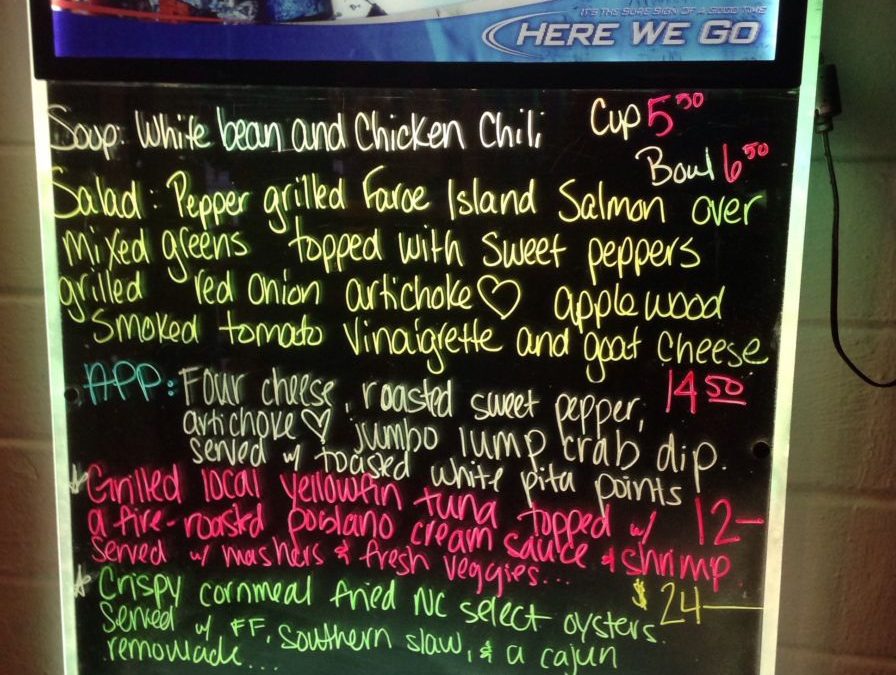 IT'S THE SURE SIGN OF A GOOD TIME
HERE WE GO
Soup: White bean and Chicken Chili Cup 5 50
Bowl 6 50
Salad: Pepper grilled Faroe Island Salmon over
mixed greens topped with sweet peppers
grilled red onion artichoke♡ applewood
smoked tomato vinaigrette and goat cheese
14 50
APP: Four cheese, roasted sweet pepper,
artichoke♡ jumbo lump crab dip.
served w/ toasted white pita points
12-
Grilled local yellowfin tuna topped w/
a fire-roasted poblano cream sauce & shrimp
served w/ mashers & fresh veggies...
$24
Crispy cornmeal fried NC select oysters.
Served w/ FF, Southern slaw, & a cajun
remoulade...